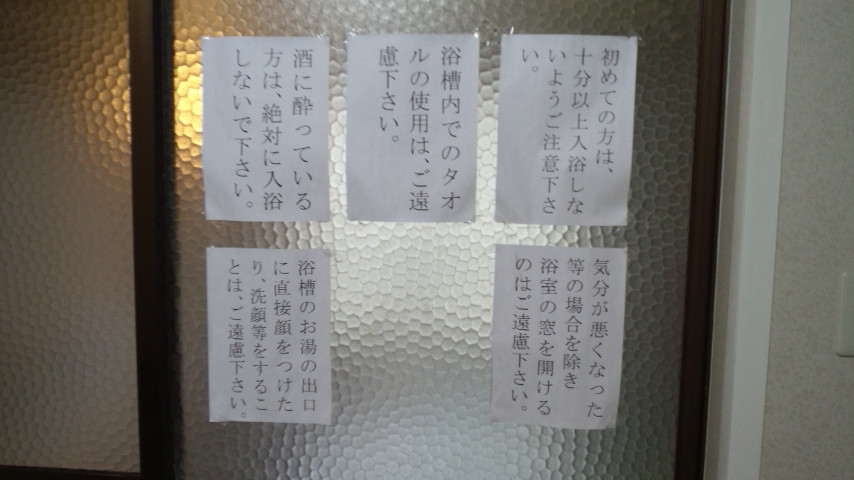 初めての方は、
十分以上入浴しな
いようご注意下さ
い。
浴槽内でのタオ
ルの使用は、ご遠
慮下さい。
酒に酔っている
方は、絶対に入浴
しないで下さい。
気分が悪くなった
等の場合を除き
浴室の窓を開ける
のはご遠慮下さい。
浴槽のお湯の出口
に直接顔をつけた
り、洗顔等をするこ
とは、ご遠慮下さい。